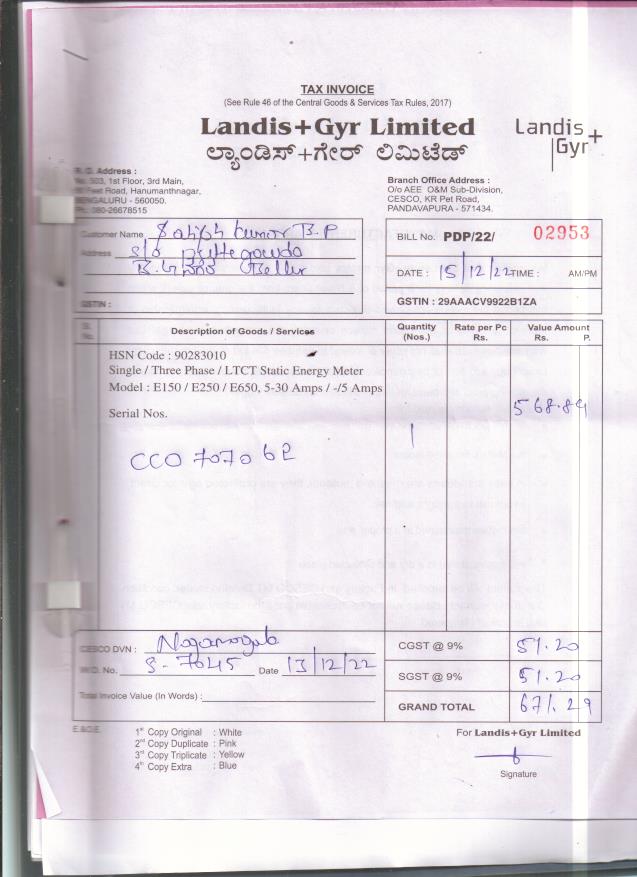 TAX INVOICE
(See Rule 46 of the Central Goods & Services Tax Rules, 2017)
Landis+Gyr Limited
ಲ್ಯಾಂಡಿಸ್+ಗೇರ್ ಲಿಮಿಟೆಡ್
Landis+
Gyr
R. O. Address :
No. 503, 1st Floor, 3rd Main,
Feet Road, Hanumanthnagar,
BENGALURU - 560050.
Ph: 080-26678515
Branch Office Address :
O/o AEE O&M Sub-Division,
CESCO, KR Pet Road,
PANDAVAPURA - 571434.
Customer Name Satish Kumar B.P
Address S/o
Bellur
GSTIN :
BILL No. PDP/22/ 02953
DATE : 15/12/22 TIME : AM/PM
GSTIN : 29AAACV9922B1ZA
Sl. No. Description of Goods / Services Quantity (Nos.) Rate per Pc Rs. Value Amount Rs. P.
HSN Code : 90283010
Single / Three Phase / LTCT Static Energy Meter
Model : E150 / E250 / E650, 5-30 Amps / -/5 Amps
Serial Nos. 1 568.89
CCO 707062
CESCO DVN : Nagamagala
W.O. No. S-7045 Date 13/12/22
Total Invoice Value (In Words) :
CGST @ 9% 51.20
SGST @ 9% 51.20
GRAND TOTAL 671.29
E.&O.E.
1st Copy Original : White
2nd Copy Duplicate : Pink
3rd Copy Triplicate : Yellow
4th Copy Extra : Blue
For Landis+Gyr Limited
Signature